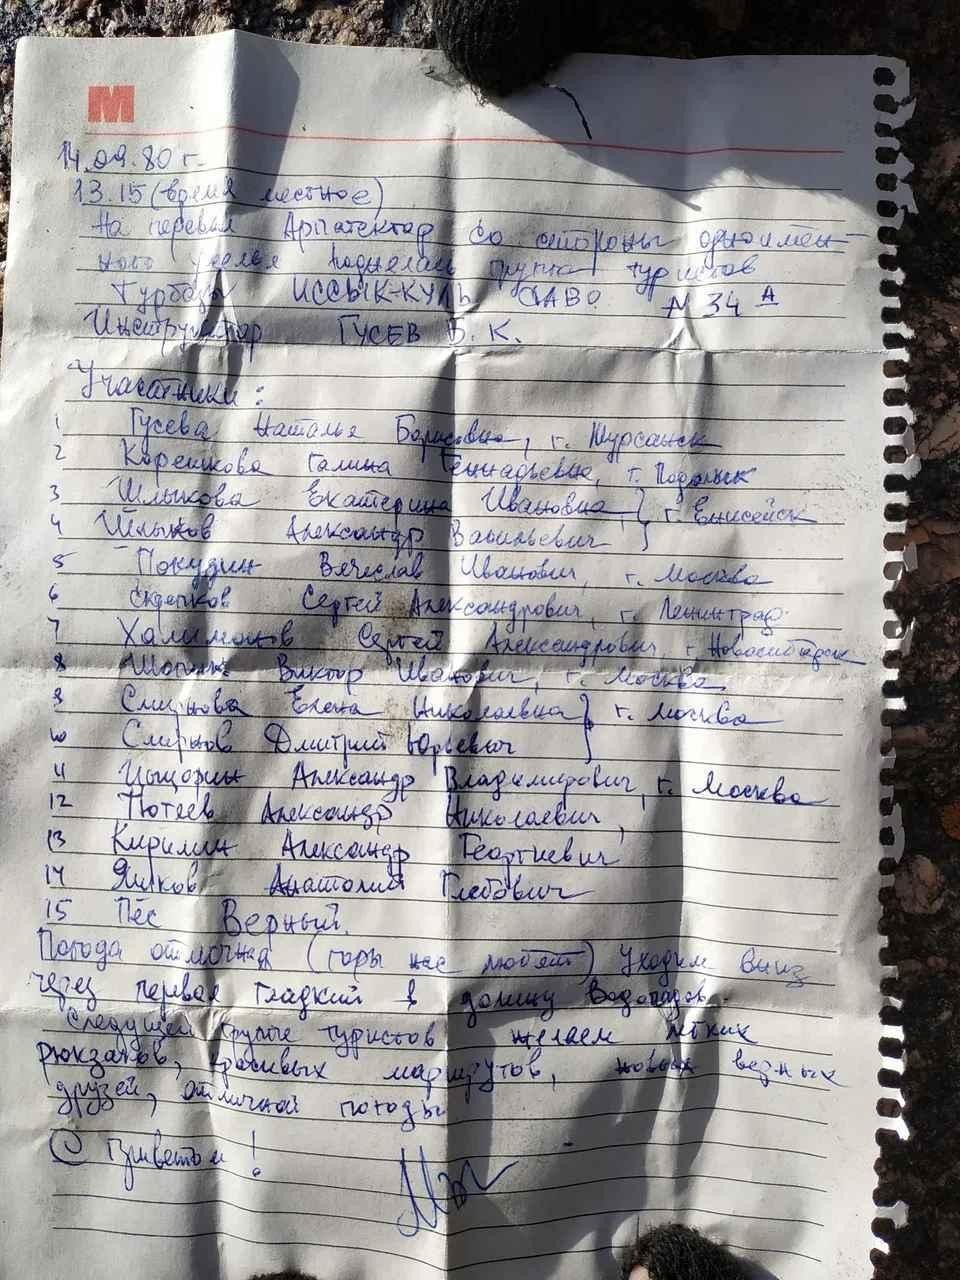 М
14.09.80 г.
13.15 (время местное)
На перевал Арпатектор со стороны одноимен-
ного уселья поднелась группа туристов
Турбазы ИССЫК-КУЛЬ САВО. N 34 А
Инструктор ГУСЕВ В. К.
Участники:
1 Гусева Наталья Борисовна, г. Мурсанск
2 Корешкова Галина Геннадьевна, г. Подольск
3 Шлыкова Екатерина Ивановна } г. Енисейск
4 Шлыков Александр Васильевич
5 Покудин Вячеслав Иванович, г. Москва
6 Сергей Александрович, г. Ленинград
7 Халиманов Сергей Александрович, г. Новосибирск
8 Виктор Иванович, г. Москва
9 Смирнова Елена Николаевна } г. Москва
10 Смирнов Дмитрий Юрьевич
11 Александр Владимирович, г. Москва
12 Тютеев Александр Николаевич,
13 Кирилин Александр Георгиевич
14 Яшков Анатолий Глебович
15 Пёс Верный.
Погода отличная (горы нас любят) Уходим вниз
через перевал Гладкий в долину Водопадов.
Следущей группе туристов желаем лёгких
рюкзаков, красивых маршрутов, новых верных
друзей, отличной погоды
С приветом!